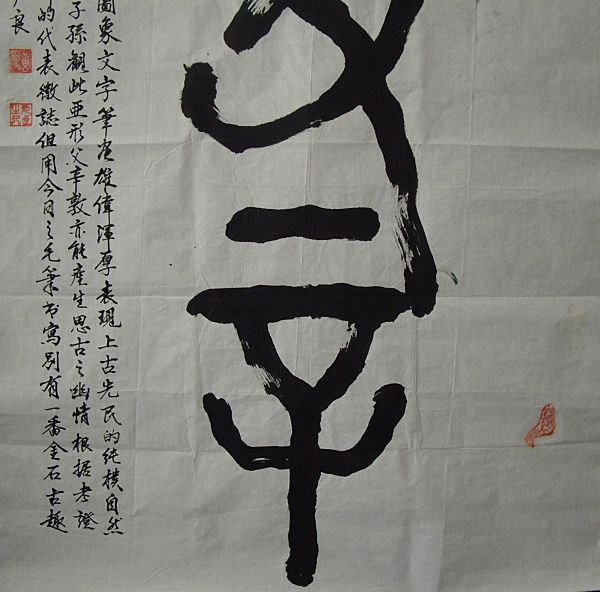 父辛
圖象文字筆畫雄偉渾厚表現上古先民的純樸自然
子孫觀此亞形父辛敦亦能產生思古之幽情根据考證
的代表徽誌但用今日之毛筆书寫別有一番金石古趣
良